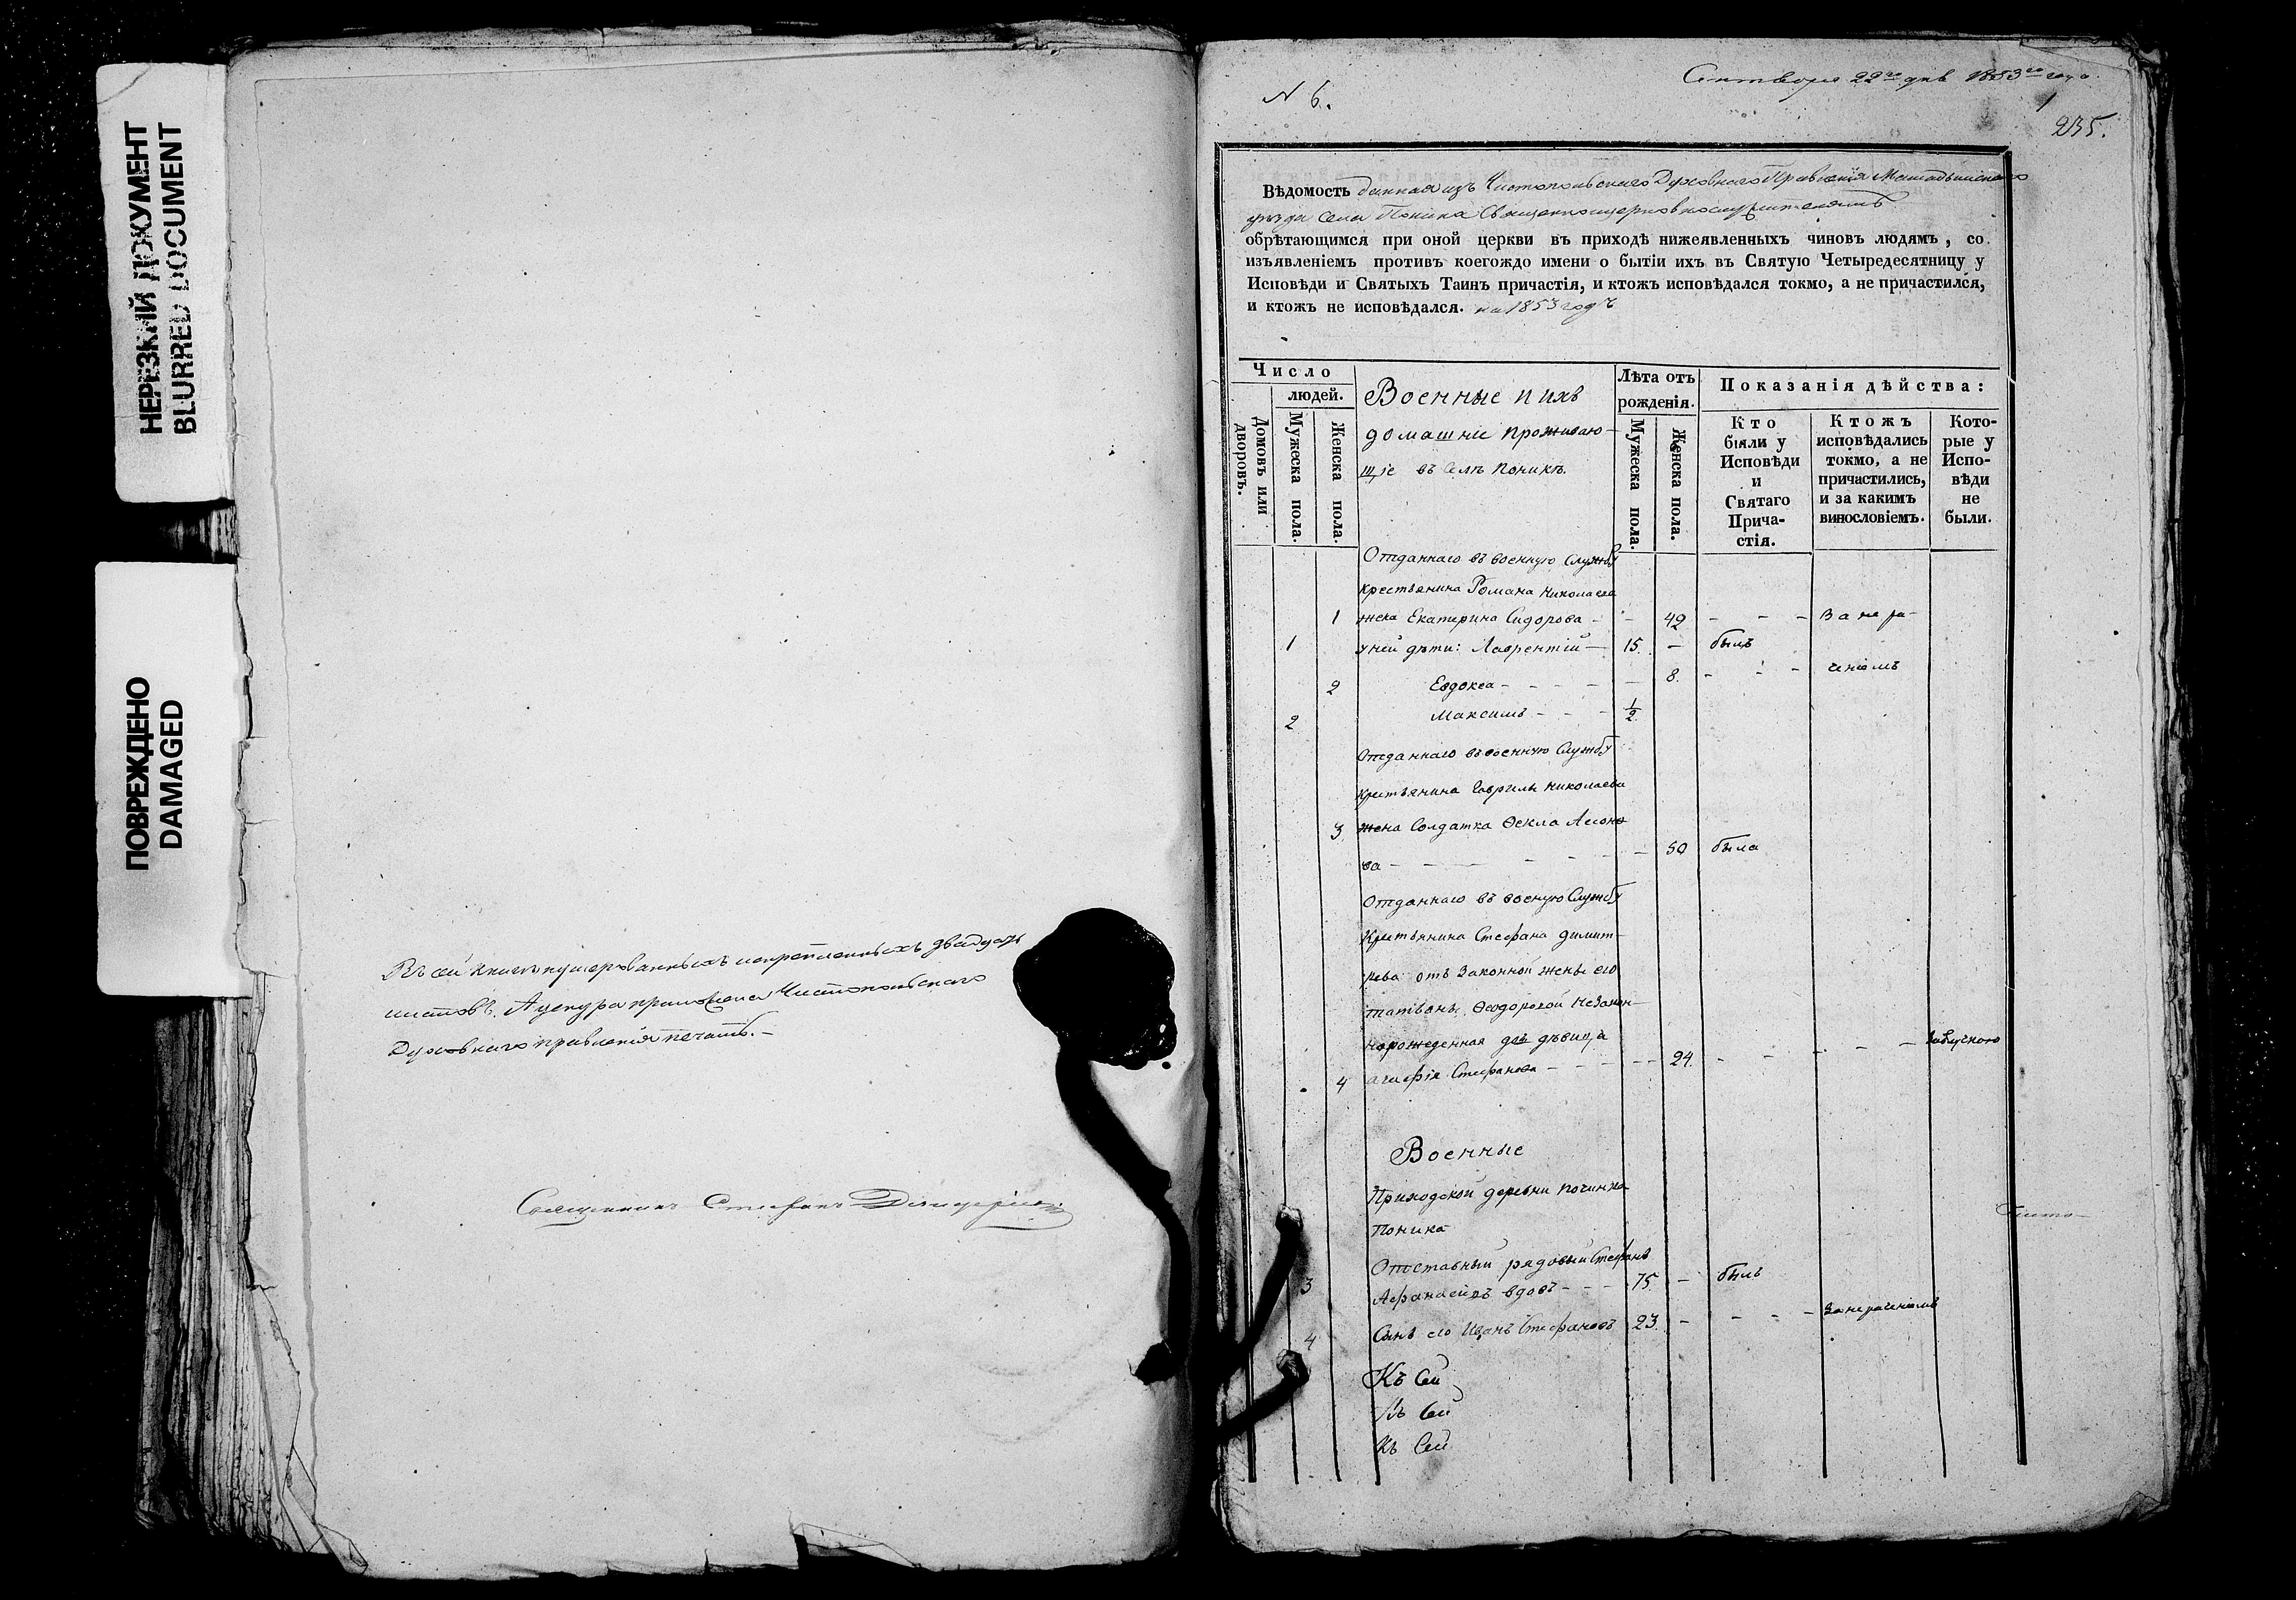 НЕРЕЗКИЙ ДОКУМЕНТ
BLURRED DOCUMENT
ПОВРЕЖДЕНО
DAMAGED
Въ сей книгѣ нумерованныхъ и скрѣпленныхъ двадцать
листовъ. А у снура приложена Чистопольскаго
Духовнаго правленія печать.-
Священникъ Стефанъ
N 6.
Сентября 22го дня 1853го года.
1
235.
Вѣдомость данная изъ Чистопольскаго Духовнаго Правленія Мамадышскаго
уѣзда Села Поника Священноцерковнослужителямъ
обрѣтающимся при оной церкви въ приходѣ нижеявленныхъ чиновъ людямъ, со
изъявленіемъ противъ коегождо имени о бытіи ихъ въ Святую Четыредесятницу у
Исповѣди и Святыхъ Таинъ причастія, и ктожъ исповѣдался токмо, а не причастился,
и ктожъ не исповѣдался. на 1853 годъ
Число
людей.
Домовъ или дворовъ.
Мужеска пола.
Женска пола.
Военные и ихъ
домашніе проживаю-
щіе въ Селѣ Поникѣ.
Лѣта отъ
рожденія.
Мужеска пола.
Женска пола.
Показанія дѣйства:
Кто
были у
Исповѣди
и
Святаго
Прича-
стія.
Ктожъ
исповѣдались
токмо, а не
причастились,
и за какимъ
винословіемъ.
Кото-
рые у
Испо-
вѣди
не
были.
Отданнаго въ военную Службу
крестьянина Романа Николаева
1 жена Екатерина Сидорова - - 42 - - - За нера-
1 у ней дѣти: Лаврентій - 15. - былъ
2 Евдокеа - - - - - 8. - - - ченіемъ
2 Максимъ - - - 1/2
Отданнаго въ военную Службу
Крестьянина Гаврилы Николаева
3 жена Солдатка Ѳекла
ва - - - - - - - 50 была
Отданнаго въ военую Службу
Крестьянина Стефана Димит-
рева отъ Законной жены его
татьяны Ѳеодоровой Незакон-
норожденная дѣвица
4 Стефанова - - - - - 24. - - - - -
Военные
Приходской деревни починка
Поника
Отставный рядовый Стефанъ
3 Афанасіевъ вдовъ - - - 75. - былъ
4 Сынъ его Иванъ Стефановъ 23. - - - - За нераченіемъ
Къ Сей
Къ Сей
Къ Сей
Чисто-